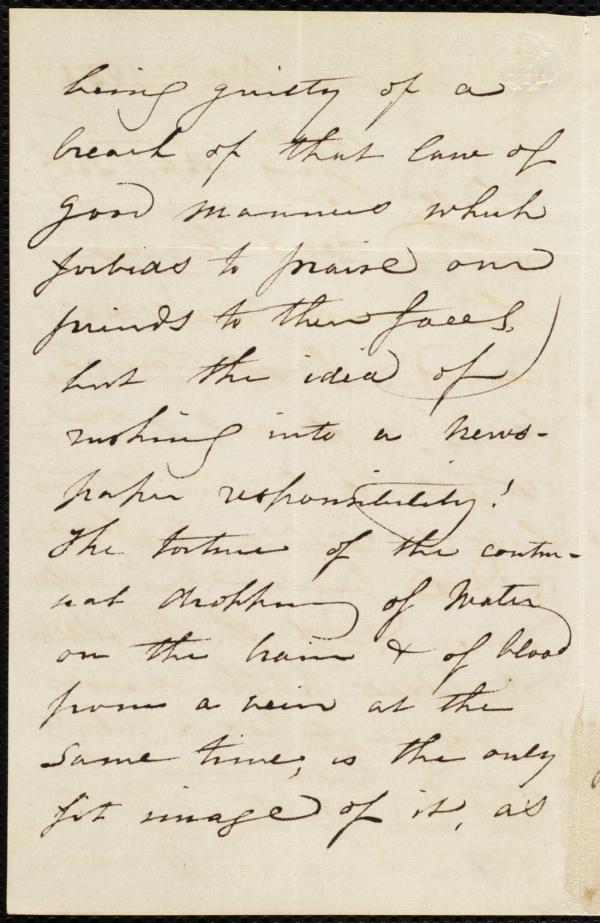 being guilty of a
breach of that law of
good manners which
forbids to praise our
friends to their faces,
but the idea of
rushing into a news-
paper responsibility!
The torture of the contin-
ual dropping of Water
on the brain & of blood
from a vein at the
same time, is the only
fit image of it, as